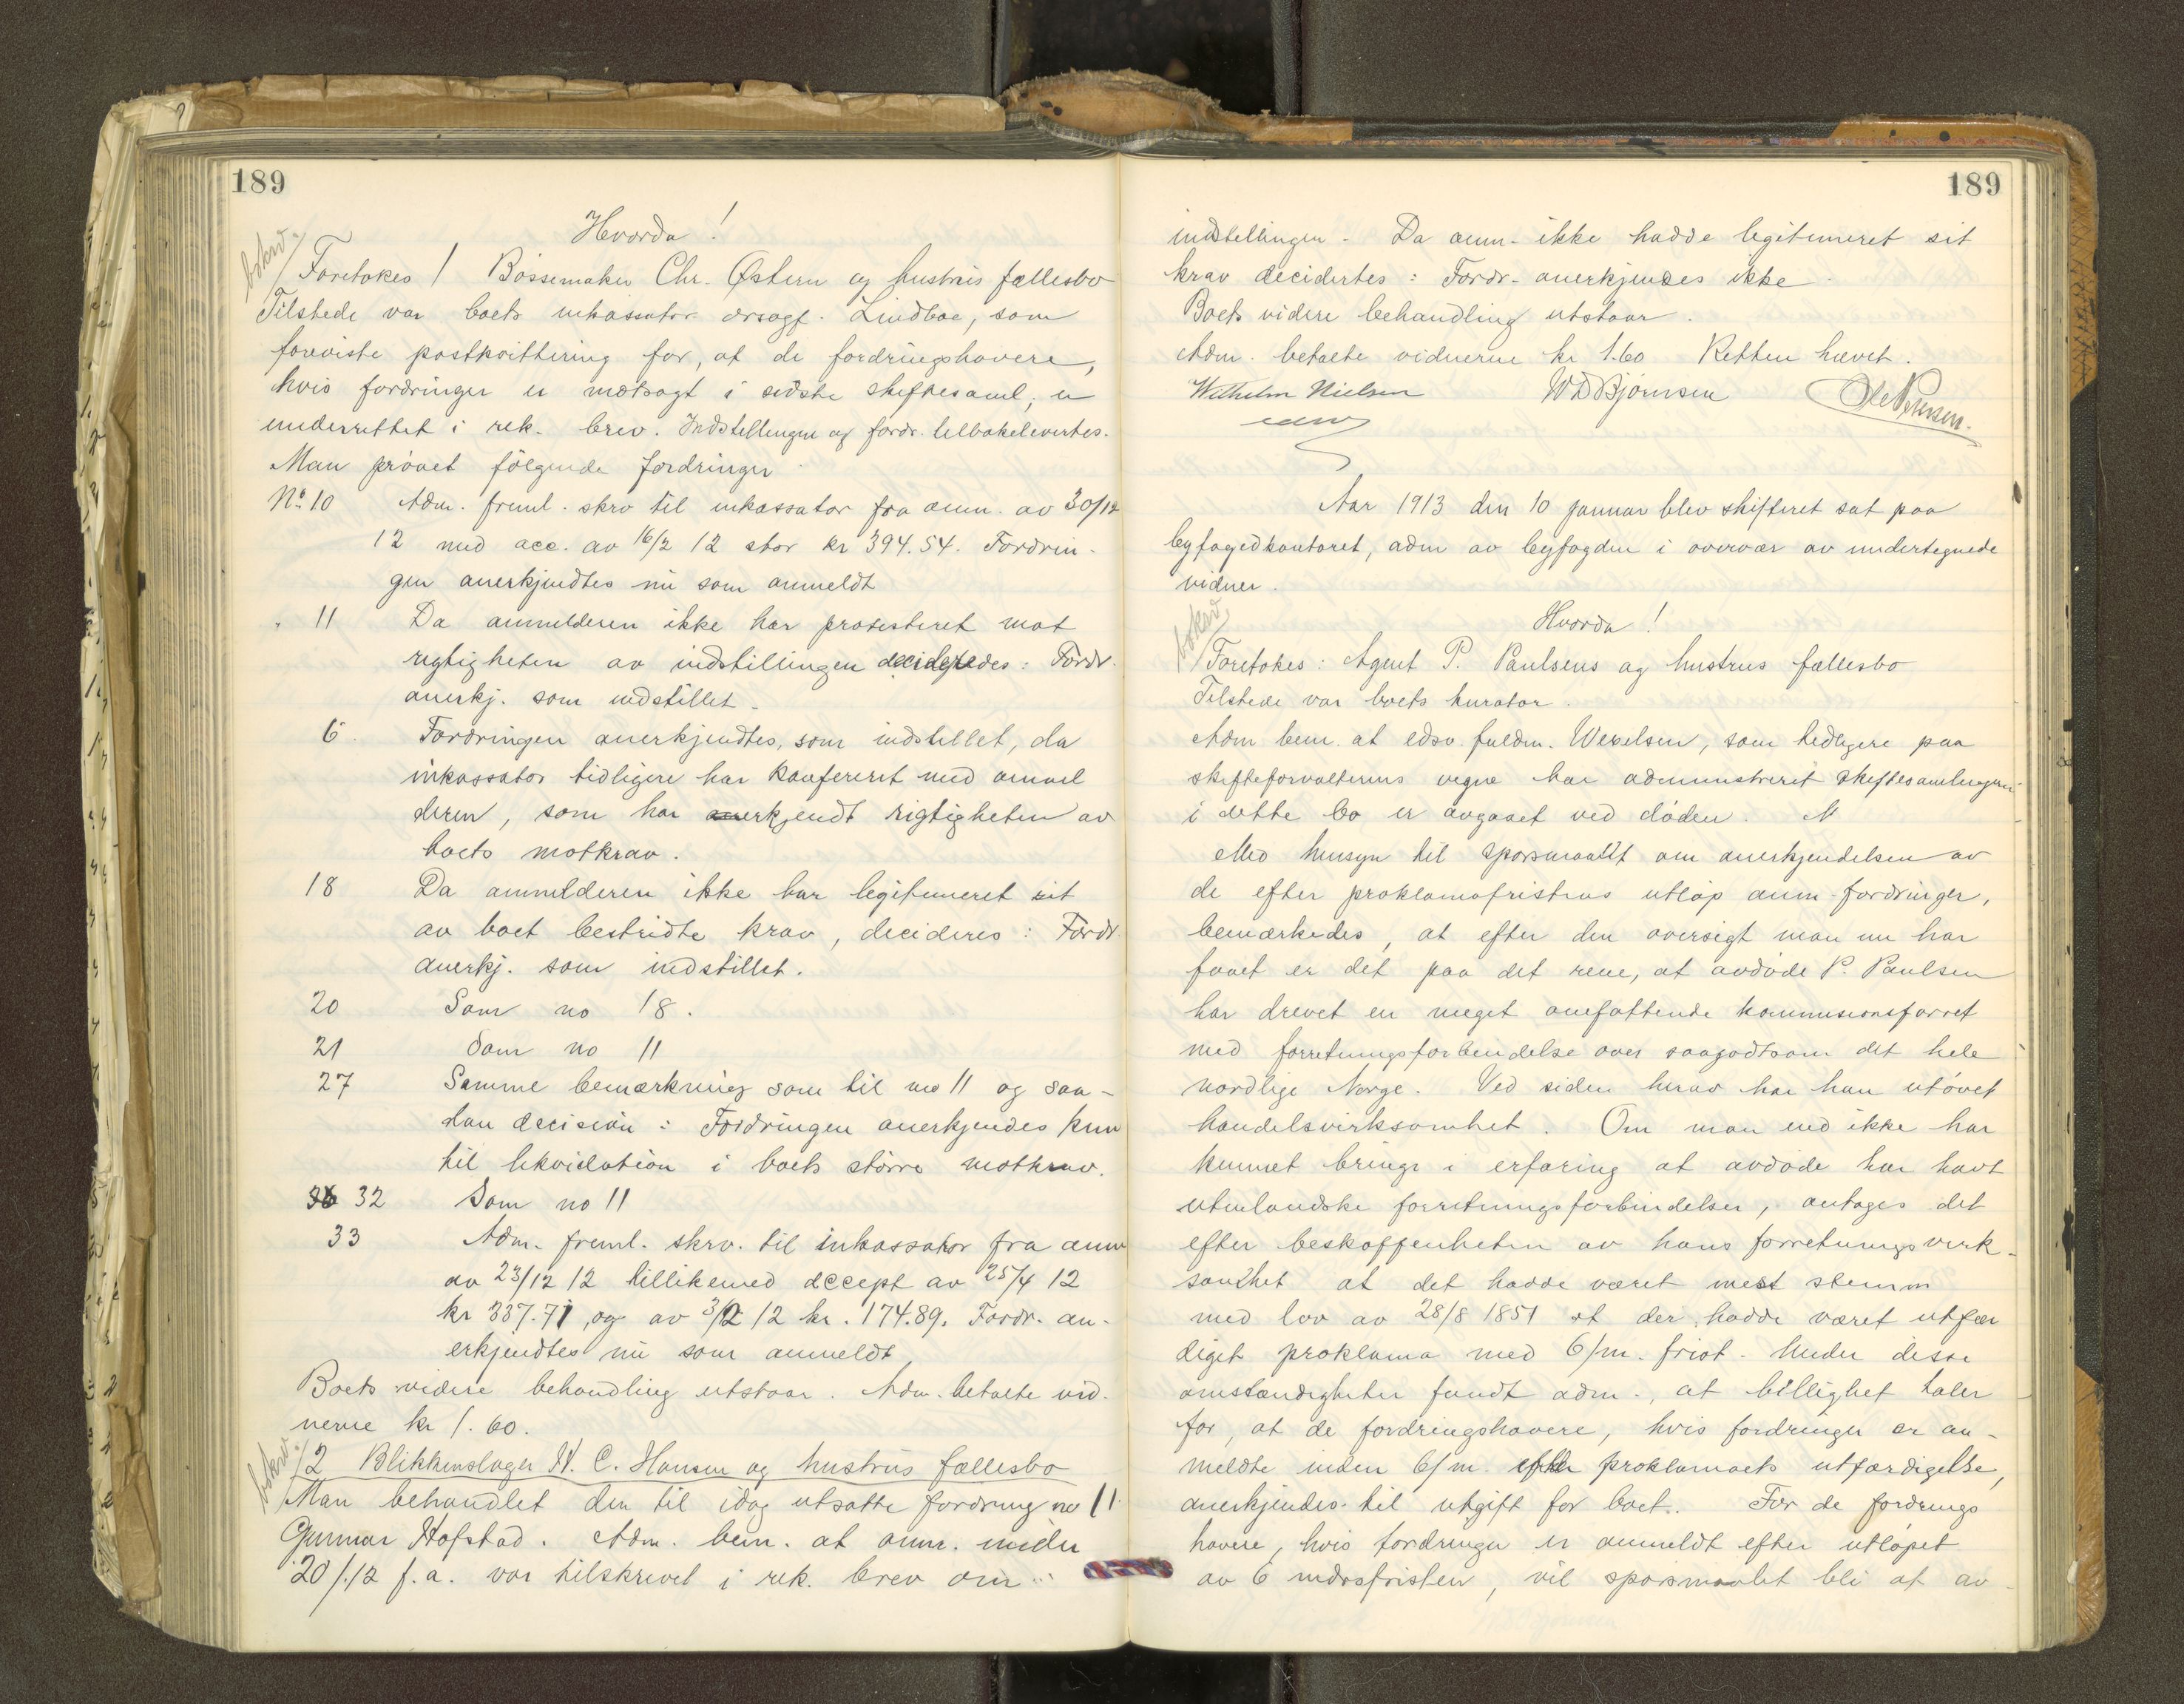 189
Hvorda!
bokv.
Foretokes 1 Bøssemaker Chr. Østern og hustrus fællesbo
Tilstede var boets inkassator orsagf. Lindboe, som
foreviste postkvittering for, at de fordringshavere,
hvis fordringer er motsagt i sidste skiftesaml., er
underrettet i rek. brev. Indstillingen og fordr. tilbakelevertes.
Man prøvet følgende fordringer
No 10 Adm. freml. skrv til inkassator fra anm. av 30/12
12 med acc. av 16/2 12 stor kr 394.54. Fordrin-
gen anerkjendtes nu som anmeldt
" 11 Da anmelderen ikke har protesteret mot
rigtigheten av indstillingen decideredes: Fordr.
anerkj. som indstillet.
6. Fordringen anerkjendtes, som indstillet, da
inkassator tidligere har konfereret med anmel
deren, som har erkjendt rigtigheten av
boets motkrav.
18 Da anmelderen ikke har legitimeret sit
av boet bestridte krav, decideres: Fordr.
anerkj. som indstillet.
20 Som no 18.
21 Som no 11
27 Samme bemærkning som til no 11 og saa-
dan decision: Fordringen anerkjendes kun
til likvidation i boets større motkrav.
32 Som no 11
33 Adm. freml. skrv. til inkassator fra anm
av 23/12 12 tillikemed accept av 25/4 12
kr 337.71, og av 3/12 12 kr. 174.89. Fordr. an-
erkjendtes nu som anmeldt
Boets videre behandling utstaar. Adm. betalte vid-
nerne kr 1.60.
bokv.
2 Blikkenslager H. C. Hansen og hustrus fællesbo
Man behandlet den til idag utsatte fordring no 11
Gunnar Hofstad. Adm. bem. at anm. under
20/12 f.a. var tilskrevet i rek. brev om
189
indstillingen. Da anm. ikke hadde legitimeret sit
krav decidertes: Fordr. anerkjendes ikke.
Boets videre behandling utstaar.
Adm. betalte vidnerne kr 1.60 Retten hævet.
Wilhelm Nielsen W D Bjørnsen
Aar 1913 den 10 januar blev skifteret sat paa
byfogedkontoret, adm av byfogden i overvær av undertegnede
vidner.
Hvorda!
bokv.
Foretokes: Agent P. Paulsens og hustrus fællesbo
Tilstede var boets kurator.
Adm bem. at edsv. fuldm. Wexelsen, som tidligere paa
skifteforvalterens vegne har administreret skiftesamlingene
i dette bo er avgaaet ved døden.
Med hensyn til spørsmaalet om anerkjendelsen av
de efter proklamafristens utløp anm. fordringer,
bemærkedes, at efter den oversigt man nu har
faaet er det paa det rene, at avdøde P. Paulsen
har drevet en meget omfattende kommisionsforret
med forretningsforbindelse over saagodtsom det hele
nordlige Norge. Ved siden herav har han utøvet
handelsvirksomhet. Om man end ikke har
kunnet bringe i erfaring at avdøde har havt
utenlandske forretningsforbindelser, antages det
efter beskaffenheten av hans forretningsvirk-
somhet at det hadde været mest stemm
med lov av 28/8 1851 at der hadde været utfær
diget proklama med 6/m. frist. Under disse
omstændigheter fandt adm., at billighet taler
for, at de fordringshavere, hvis fordringer er an-
meldte inden 6/m. efter proklamaets utfærdigelse,
anerkjendes til utgift for boet. For de fordrings
havere, hvis fordringer er anmeldt efter utløpet
av 6 mdrsfristen, vil spørsmaalet bli at av-